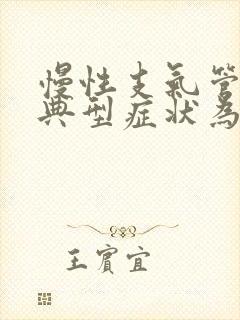 慢性支氣管
典型症狀為
王賓宜